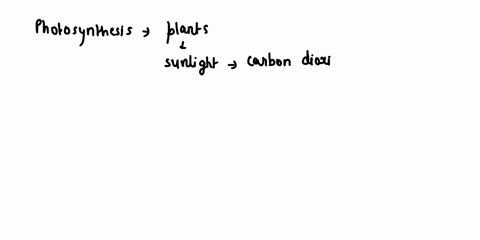 Photosynthesis → plants
↓
sunlight → carbon dioxi